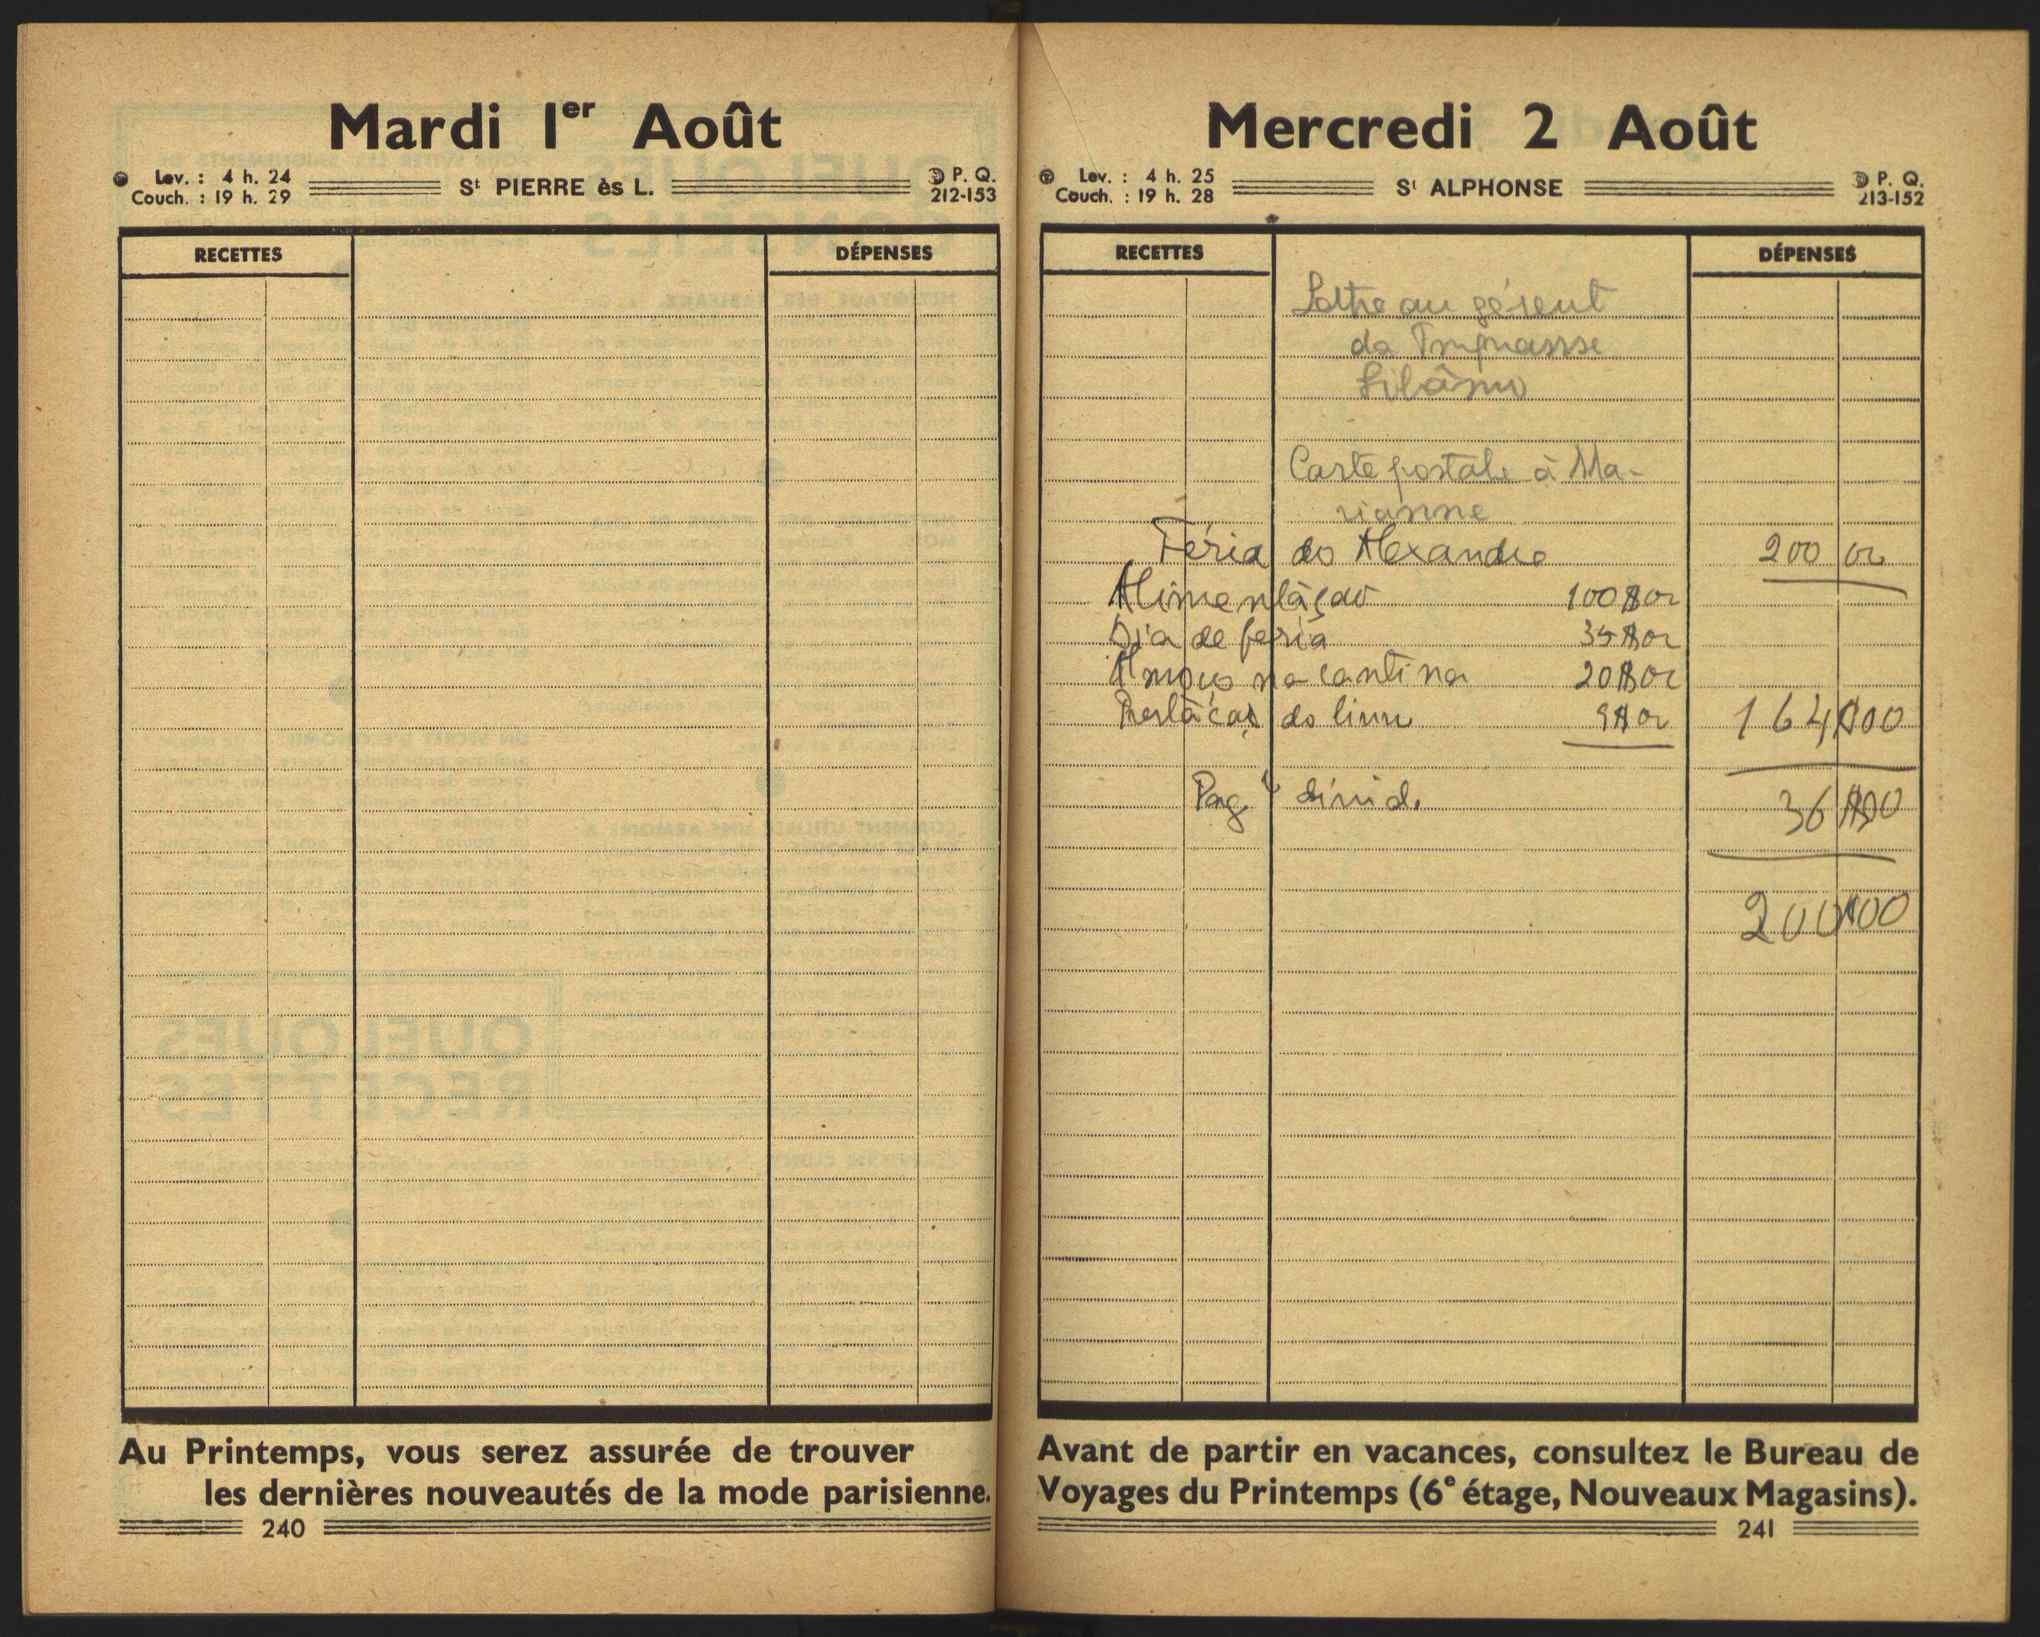 Mardi 1er Août
Lev. : 4 h. 24
Couch. : 19 h. 29
St PIERRE ès L.
P. Q.
212-153
RECETTES
DÉPENSES
Au Printemps, vous serez assurée de trouver
les dernières nouveautés de la mode parisienne.
240
Mercredi 2 Août
Lev. : 4 h. 25
Couch. : 19 h. 28
St ALPHONSE
P. Q.
213-152
RECETTES
DÉPENSES
Lettre au gérent
da
Carte postale à Ma-
rianne
Féria do Alexandre 200 00
Alimentação 100$00
Dia de feria 35$00
Almoço na cantina 20$00
Prestação do livro 9$00 164$00
Pag. divid. 36$00
200$00
Avant de partir en vacances, consultez le Bureau de
Voyages du Printemps (6e étage, Nouveaux Magasins).
241